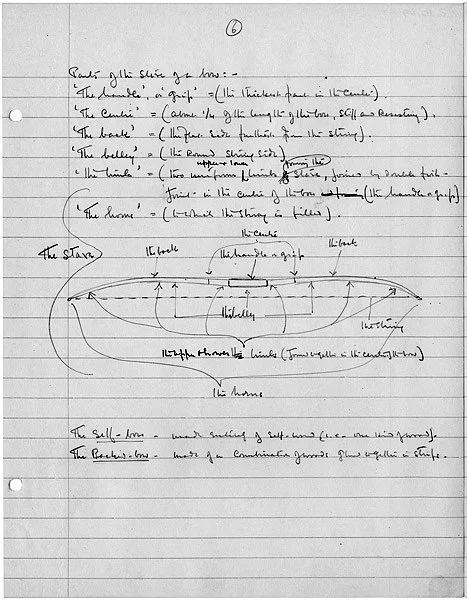 6
Parts of the Stave of a bow:-
'The handle', or 'grip' = (the thickest part in the Centre).
'The Centre' = (about 1/4 of the length of the bow, Stiff and Resisting).
'The back' = (the flat Side furthest from the String).
'The belley' = (the Round String Side)
upper & lower forming the
'The limbs' = (two uniform limbs Stave, joined by double fish-
Joint - in the centre of the bow (the handle or grip)
'The horns' = (to which the String is fitted).
The Stave
the Centre
the back
the handle or grip
the back
the belley
the String
the upper & lower limbs (Joined together in the centre of the bow)
the horns
The Self-bow - made entirely of Self-wood (i.e - one kind of wood).
The Backed-bow - made of a Combination of woods glued together in Strips.